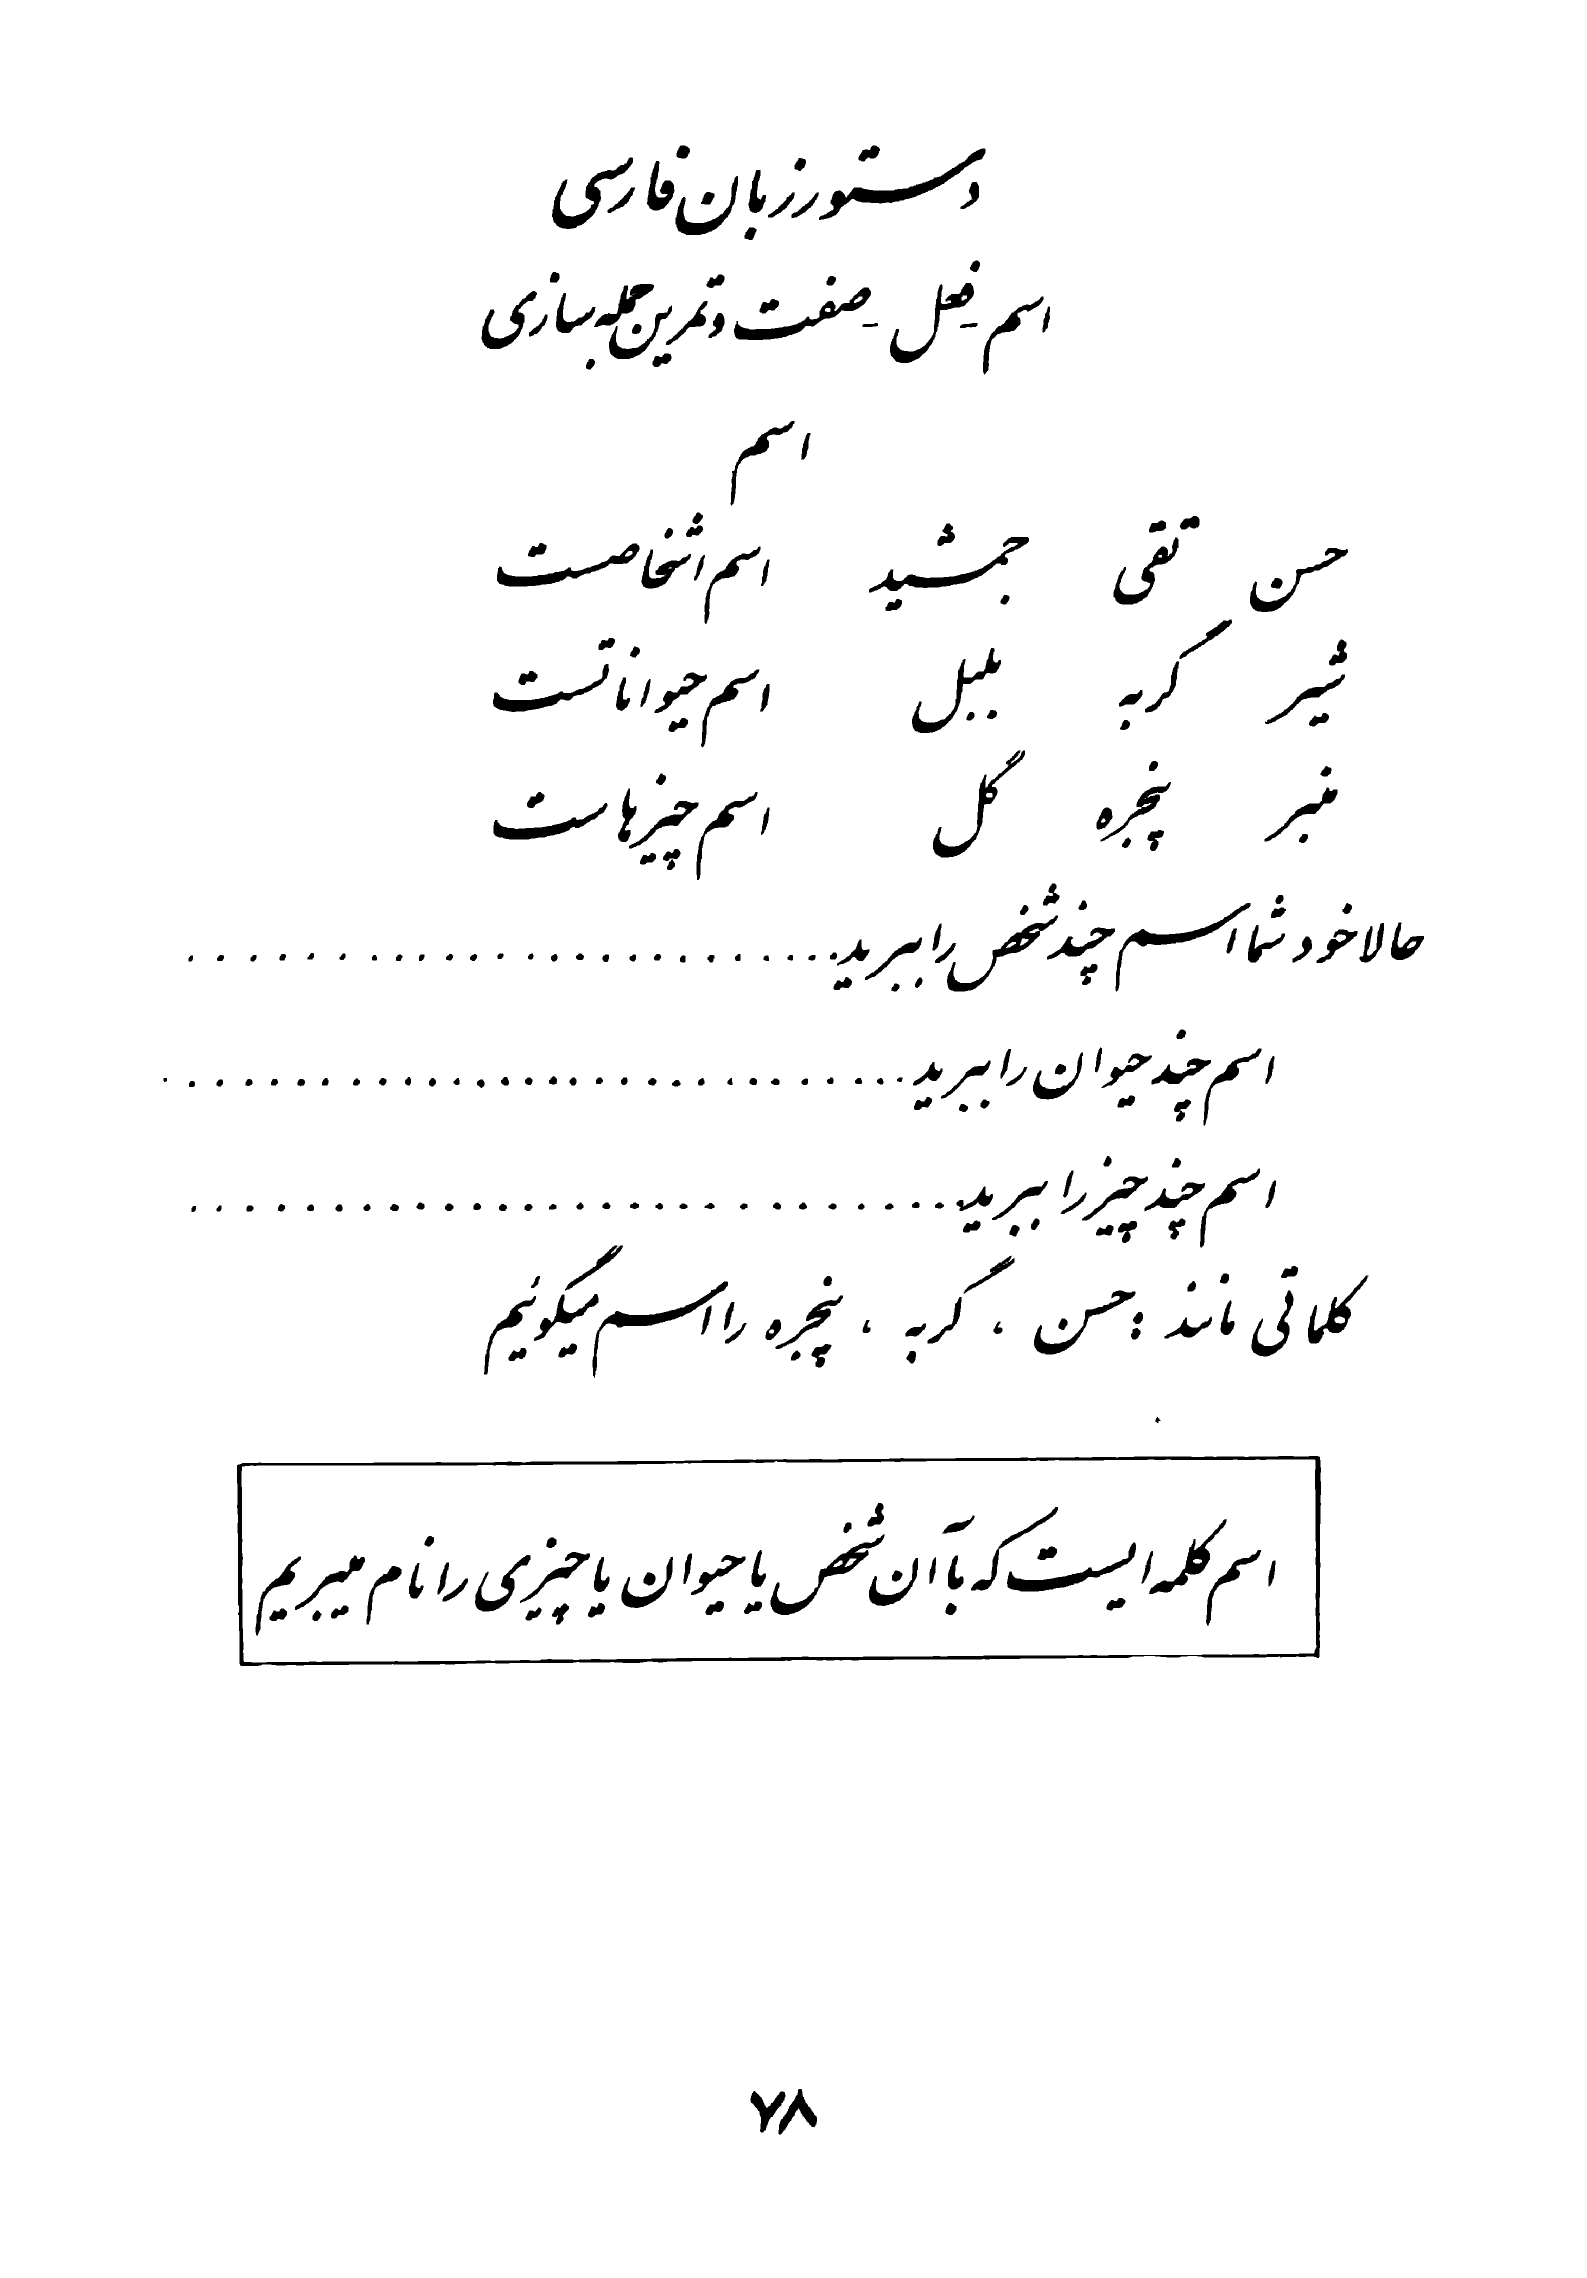 دستور زبان فارسی
اسم - فعل - صفت و تمرین جمله سازی
اسم
حسن تقی جمشید اسم اشخاصست
شیر گربه بلبل اسم حیواناتست
منبر پنجره گل اسم چیزهاست
حالا خود شما اسم چند شخص را ببرید..........................
اسم چند حیوان را ببرید..............................
اسم چند چیز را ببرید............................
کلماتی مانند : حسن ، گربه ، پنجره را اسم میگوئیم
اسم کلمه ایست که با آن شخص یا حیوان یا چیزی را نام میبریم
۷۸